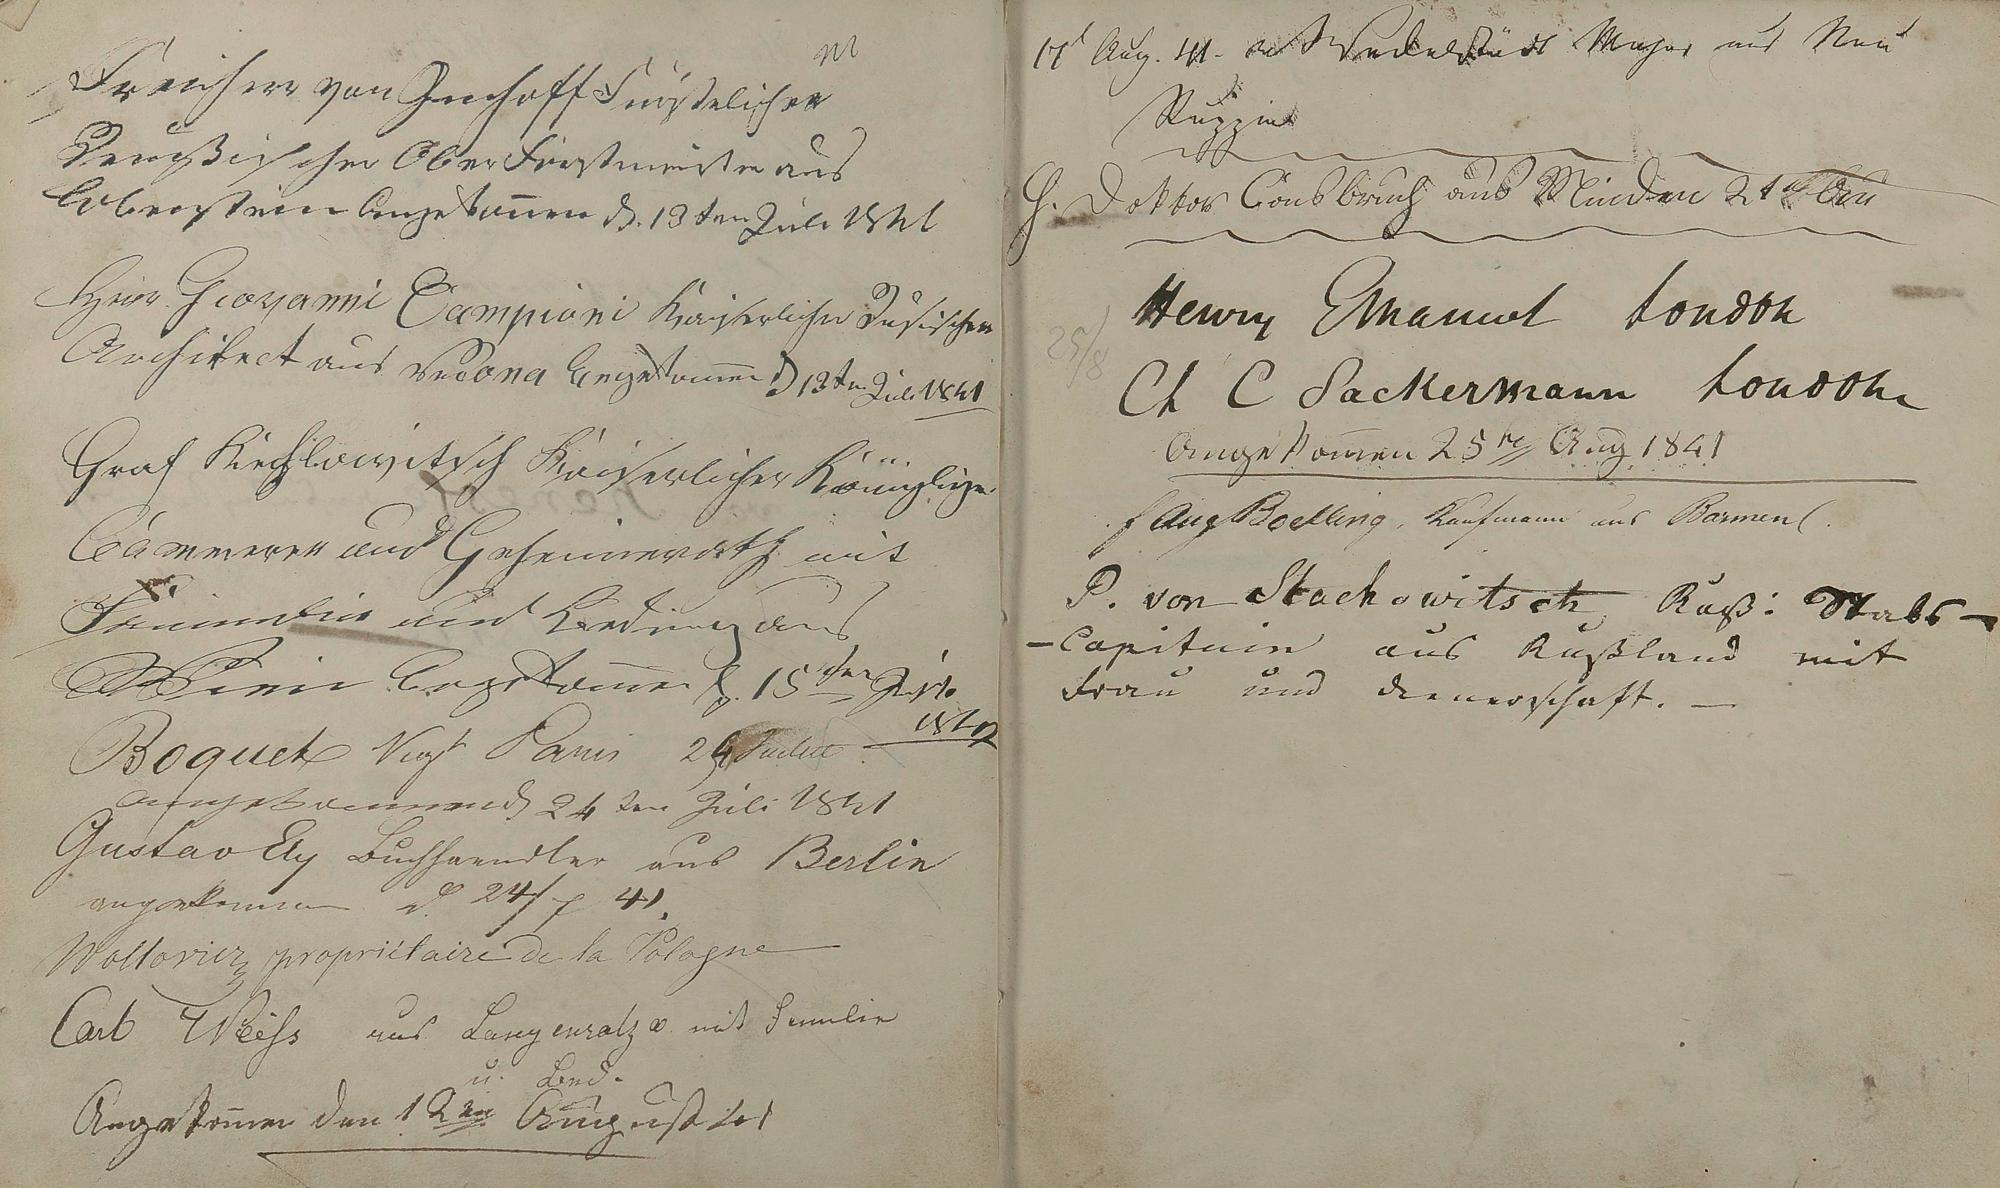 Freiherr von Imhoff Fürstlicher
Reußischer Ober Forstmeister aus
Lobenstein Angekom̄en d. 13ten Juli 1841
Herr Giovanni Campioni Kaiserlicher Rusischer
Architect aus Verona Angekom̄en d 13ten Juli 1841
Graf Kaiserlicher Königlicher
Cämmerer und Geheimerath mit
Familie und Bedinung aus
Wien Angekom̄en d. 15ten Juli
Boquet Paris 24 Juillet
angekommen d 24ten Juli 1841
Gustav Ey Buchhaendler aus Berlin
angekommen d. 24/7 41.
propriétaire de la Pologne
Carl Weiss aus Langensalza mit Familie
u. Bed.
Angekom̄en den 12ten August 41
17t Aug. 41. Major aus Neu
Ruppin
H. Doktor Consbruch aus Minden 21t
Henry Emanuel London
25/8
Ch C Sackermann London
Angekom̄en 25te Aug 1841
Aug Boelling, Kaufmann aus Barmen.
P. von Stachowitsch Ruß: Stabs-
-Capitain aus Rußland mit
Frau und dienerschaft. —